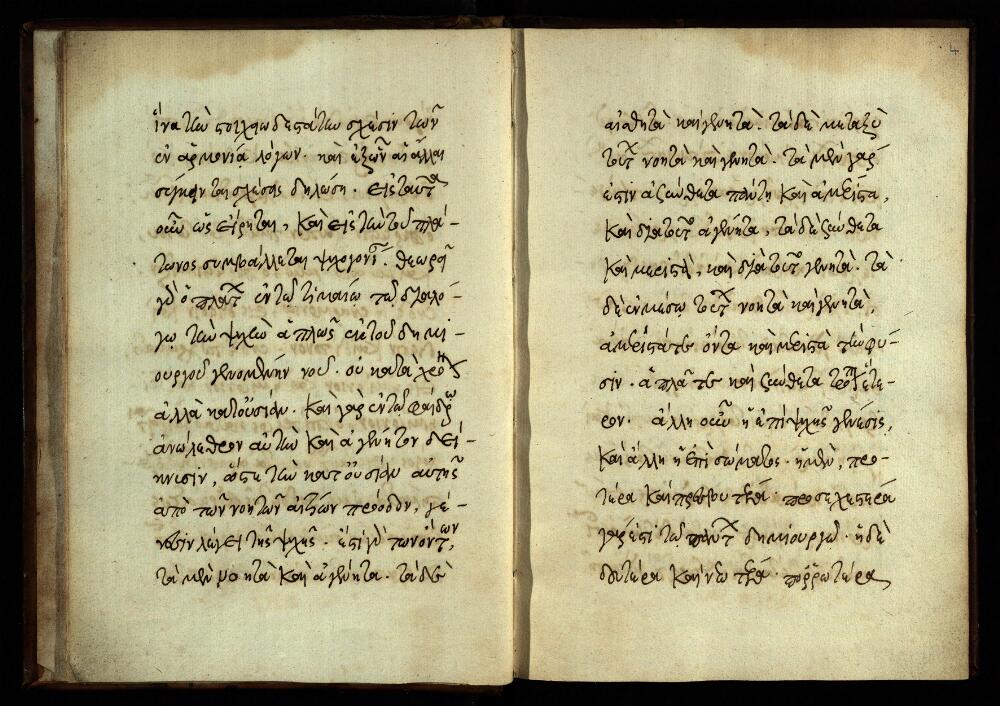 ἵνα τὴν στοιχιωδεστάτην σχέσιν τῶν
ἐν ἁρμονίᾳ λόγων. καὶ ἐξ ὧν αἱ ἄλλαι
σχέσεις δηλώσῃ. εἰς ταῦτα
οὖν ὡς εἴρηται, καὶ εἰς τὴν τοῦ πλά-
τωνος συμβάλλεται ψυχογονίαν. θεωρεῖ
γὰρ ὁ πλάτων ἐν τῷ τιμαίῳ τῷ διαλό-
γῳ τὴν ψυχὴν ἁπλῶς ἐκ τοῦ δημι-
ουργοῦ γενομένην νοῦ. οὐ κατὰ χρόνον
ἀλλὰ κατ' οὐσίαν. καὶ γὰρ ἐν τῷ φαίδρῳ
ἀνώλεθρον αὐτὴν καὶ ἀγένητον δεί-
κνυσιν, ὥστε τὴν κατ' οὐσίαν αὐτῆς
ἀπὸ τῶν νοητῶν αἰτίων πρόοδον, γέ-
νεσιν λέγει τῆς ψυχῆς. ἔστι γὰρ τῶν ὄντων,
τὰ μὲν νοητὰ καὶ ἀγένητα. τὰ δὲ
4
αἰσθητὰ καὶ γενητά. τὰ δὲ μεταξὺ
τούτων νοητὰ καὶ γενητά. τὰ μὲν γάρ
ἐστιν ἀσύνθετα πάντη καὶ ἀμέριστα,
καὶ διὰ τοῦτο ἀγένητα, τὰ δὲ σύνθετα
καὶ μεριστὰ, καὶ διὰ τοῦτο γενητά. τὰ
δὲ ἐν μέσῳ τούτων νοητὰ καὶ γενητὰ,
ἀμέριστά τε ὄντα καὶ μεριστὰ τὴν φύ-
σιν. ἁπλᾶ τε καὶ σύνθετα τρόπον ἕτε-
ρον. ἄλλη οὖν ἡ ἐπὶ ψυχῆς γένεσις,
καὶ ἄλλη ἡ ἐπὶ σώματος. ἡ μὲν, προ-
τέρα καὶ πρεσβυτέρα. προσεχεστέρα
γάρ ἐστι τῷ πάντων δημιουργῷ. ἡ δὲ
δευτέρα καὶ νεωτέρα. πορρωτέρα